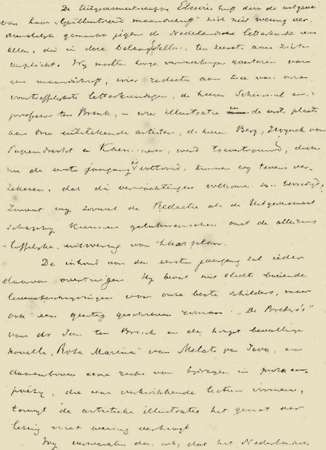 De Uitgeversmaatschappij Elsevier heeft door de uitgave
van haar "geïllustreerd maandschrift" zich niet weinig ver-
dienstelijk gemaakt jegens de Nederlandsche letterkunde en
allen, die in deze belangstellen, ten zeerste aan zich
verplicht. Wij mochten hooge verwachtingen koesteren van
een maandschrift, wier redactie aan twee van onze
voortreffelijkste letterkundigen, de heeren Schimmel en
professor ten Brink, – wier illustratie aan
onze uitstekende artisten, de heeren
werd toevertrouwd,
nu de eerste jaargang is voltooid, kunnen wij tevens ver-
zekeren, dat die verwachtingen volkomen zijn bevredigd,
zoowel de Redactie als de Uitgevers-maat
schappij kunnen gelukwenschen met de
uitvoering van haar plan.
De inhoud van den eersten jaargang zal ieder
daarvan overtuigen. Hij bevat niet slechts boeiende
levensbeschrijvingen van onze beste schilders, maar
ook een geestig geschreven roman "De Bredero's"
van dr. Jan ten Brink en de hoogst bevallige
novelle, Rosa Marina van Melati van Java, en
daarenboven eene reeks van bijdragen in proza en
poëzie, die eene verkwikkende lectuur vormen,
terwijl de artistieke illustratie het genot der
lezing niet weinig verhoogt.
Wij dat het Nederlandsche